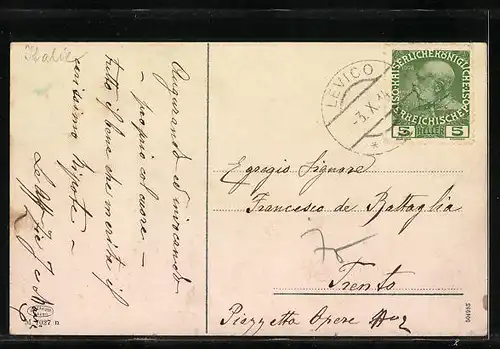 Italie
Augurando ed invocando
- proprio col cuore -
tutto il bene che merita il
carissimo Nipote -
Le aff. Zie
LEVICO
-3.X.
KAISERLICHE KÖNIGLICHE ÖSTERREICHISCHE POST
5 HELLER 5
Egregio Signore
Francesco de Battaglia
Trento
Piazzetta Opere
7037 B